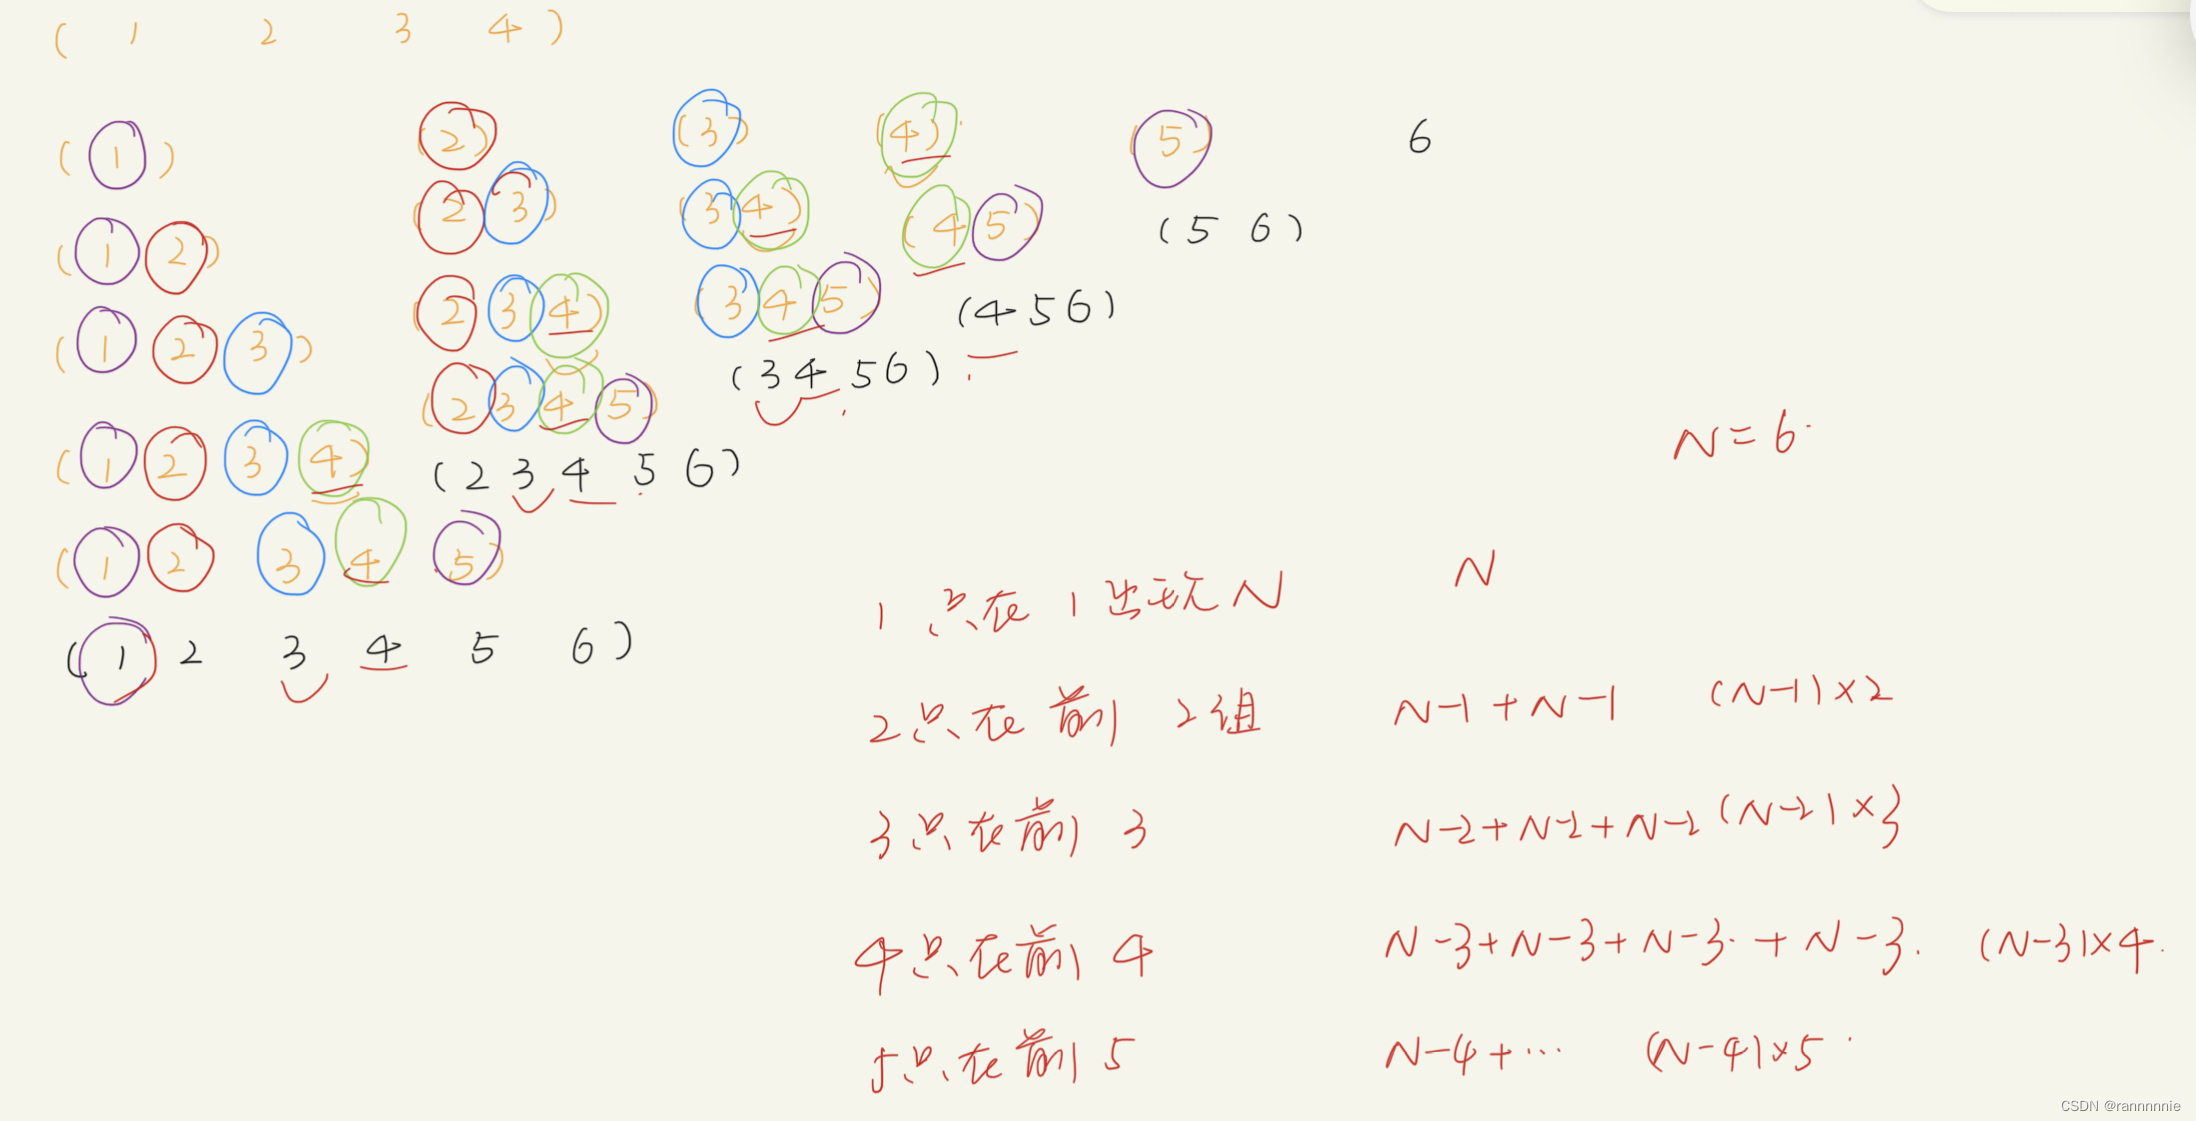 ( 1 2 3 4 )
( 1 ) ( 2 ) ( 3 ) ( 4 ) ( 5 ) 6
( 1 2 ) ( 2 3 ) ( 3 4 ) ( 4 5 ) ( 5 6 )
( 1 2 3 ) ( 2 3 4 ) ( 3 4 5 ) ( 4 5 6 )
( 1 2 3 4 ) ( 2 3 4 5 ) ( 3 4 5 6 )
( 1 2 3 4 5 ) ( 2 3 4 5 6 )
( 1 2 3 4 5 6 )
N=6
1 只在 1 出现 N N
2 只在 前 2组 N-1+N-1 (N-1)×2
3 只在前 3 N-2+N-2+N-2 (N-2)×3
4 只在前 4 N-3+N-3+N-3+N-3. (N-3)×4.
5 只在前 5 N-4+… (N-4)×5
CSDN @rannnnnie